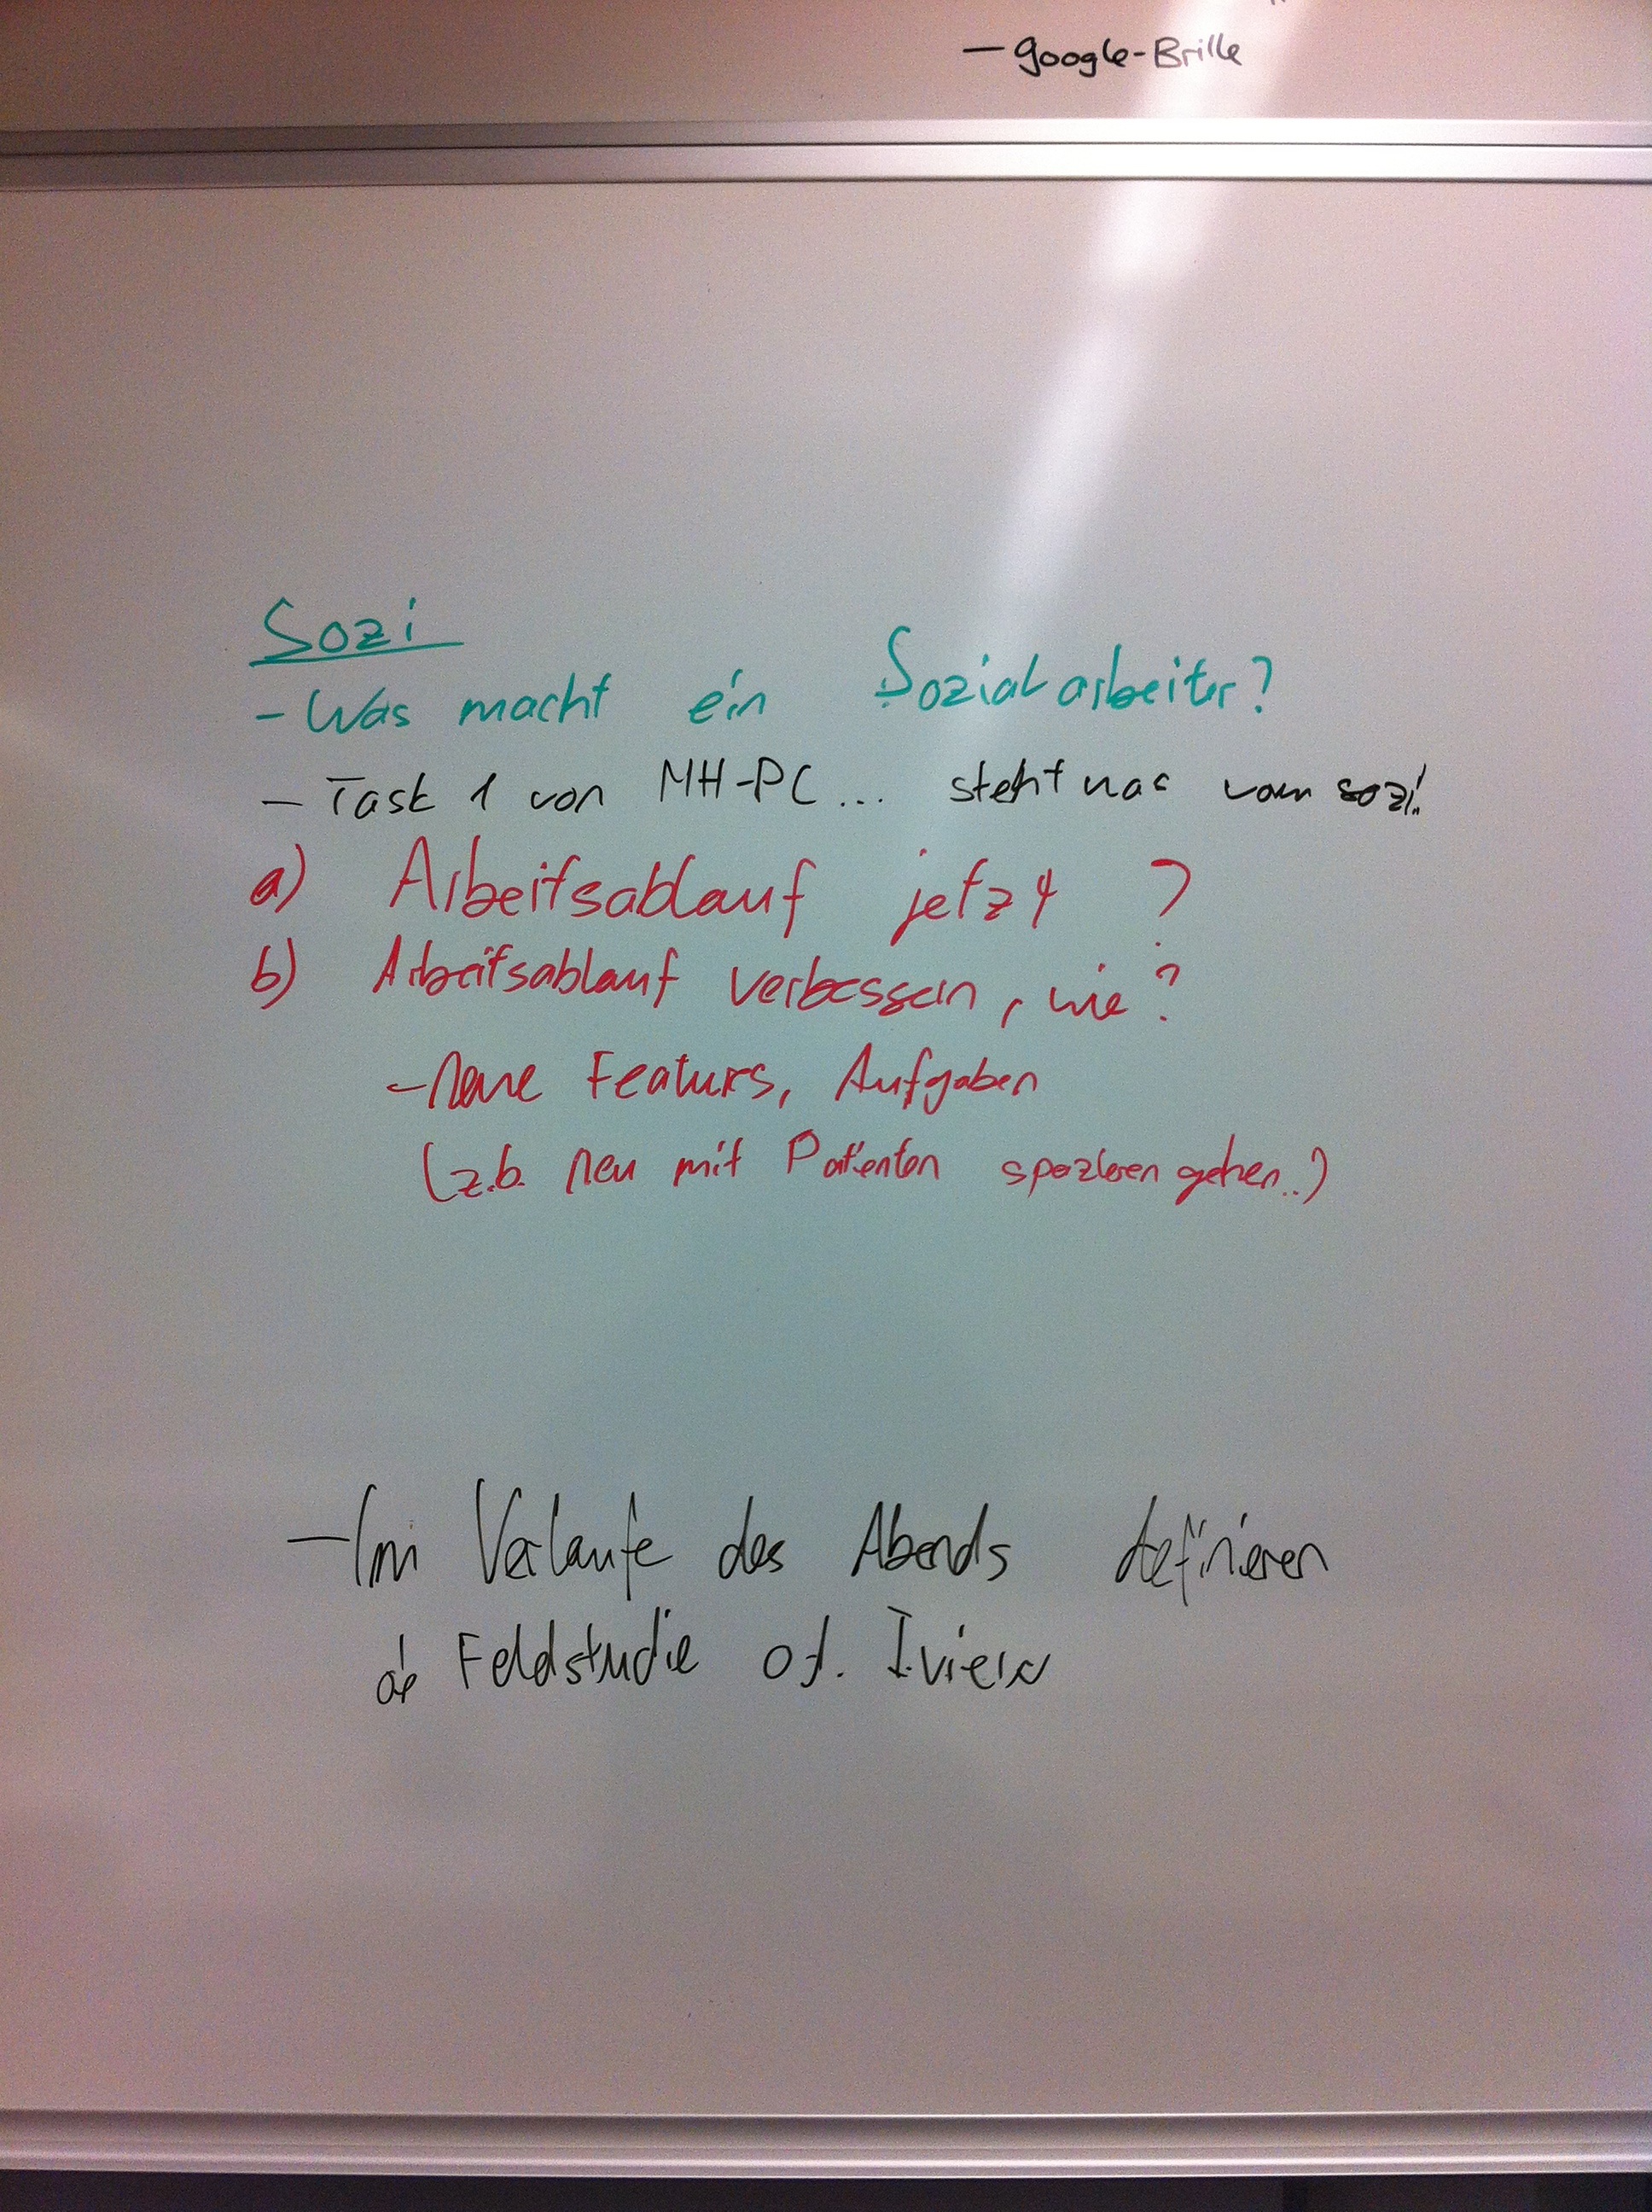 - Google-Brille
Sozi
- Was macht ein Sozialarbeiter?
- Task 1 von MH-PC... steht was vom sozi!
a) Arbeitsablauf jetzt ?
b) Arbeitsablauf verbessern, wie?
- neue Featurs, Aufgaben
(z.b. neu mit Patienten spazieren gehen..)
- Im Verlaufe des Abends definieren
ob Feldstudie od. Iview